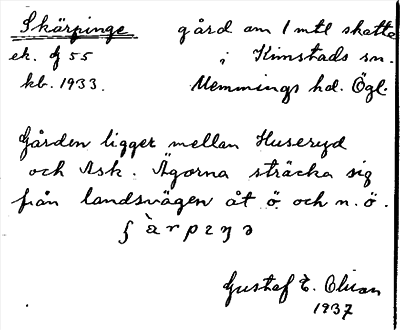 Skärpinge gård om 1 mtl skatte
ek. bl 55 i Kimstads sn.
kb. 1933. Memmings hd. Ögl.
Gården ligger mellan Huseryd
och Ask. Ägorna sträcka sig
från landsvägen åt ö. och n.ö.
ʃ`ärpɪŋə
Gustaf E. Olson
1937